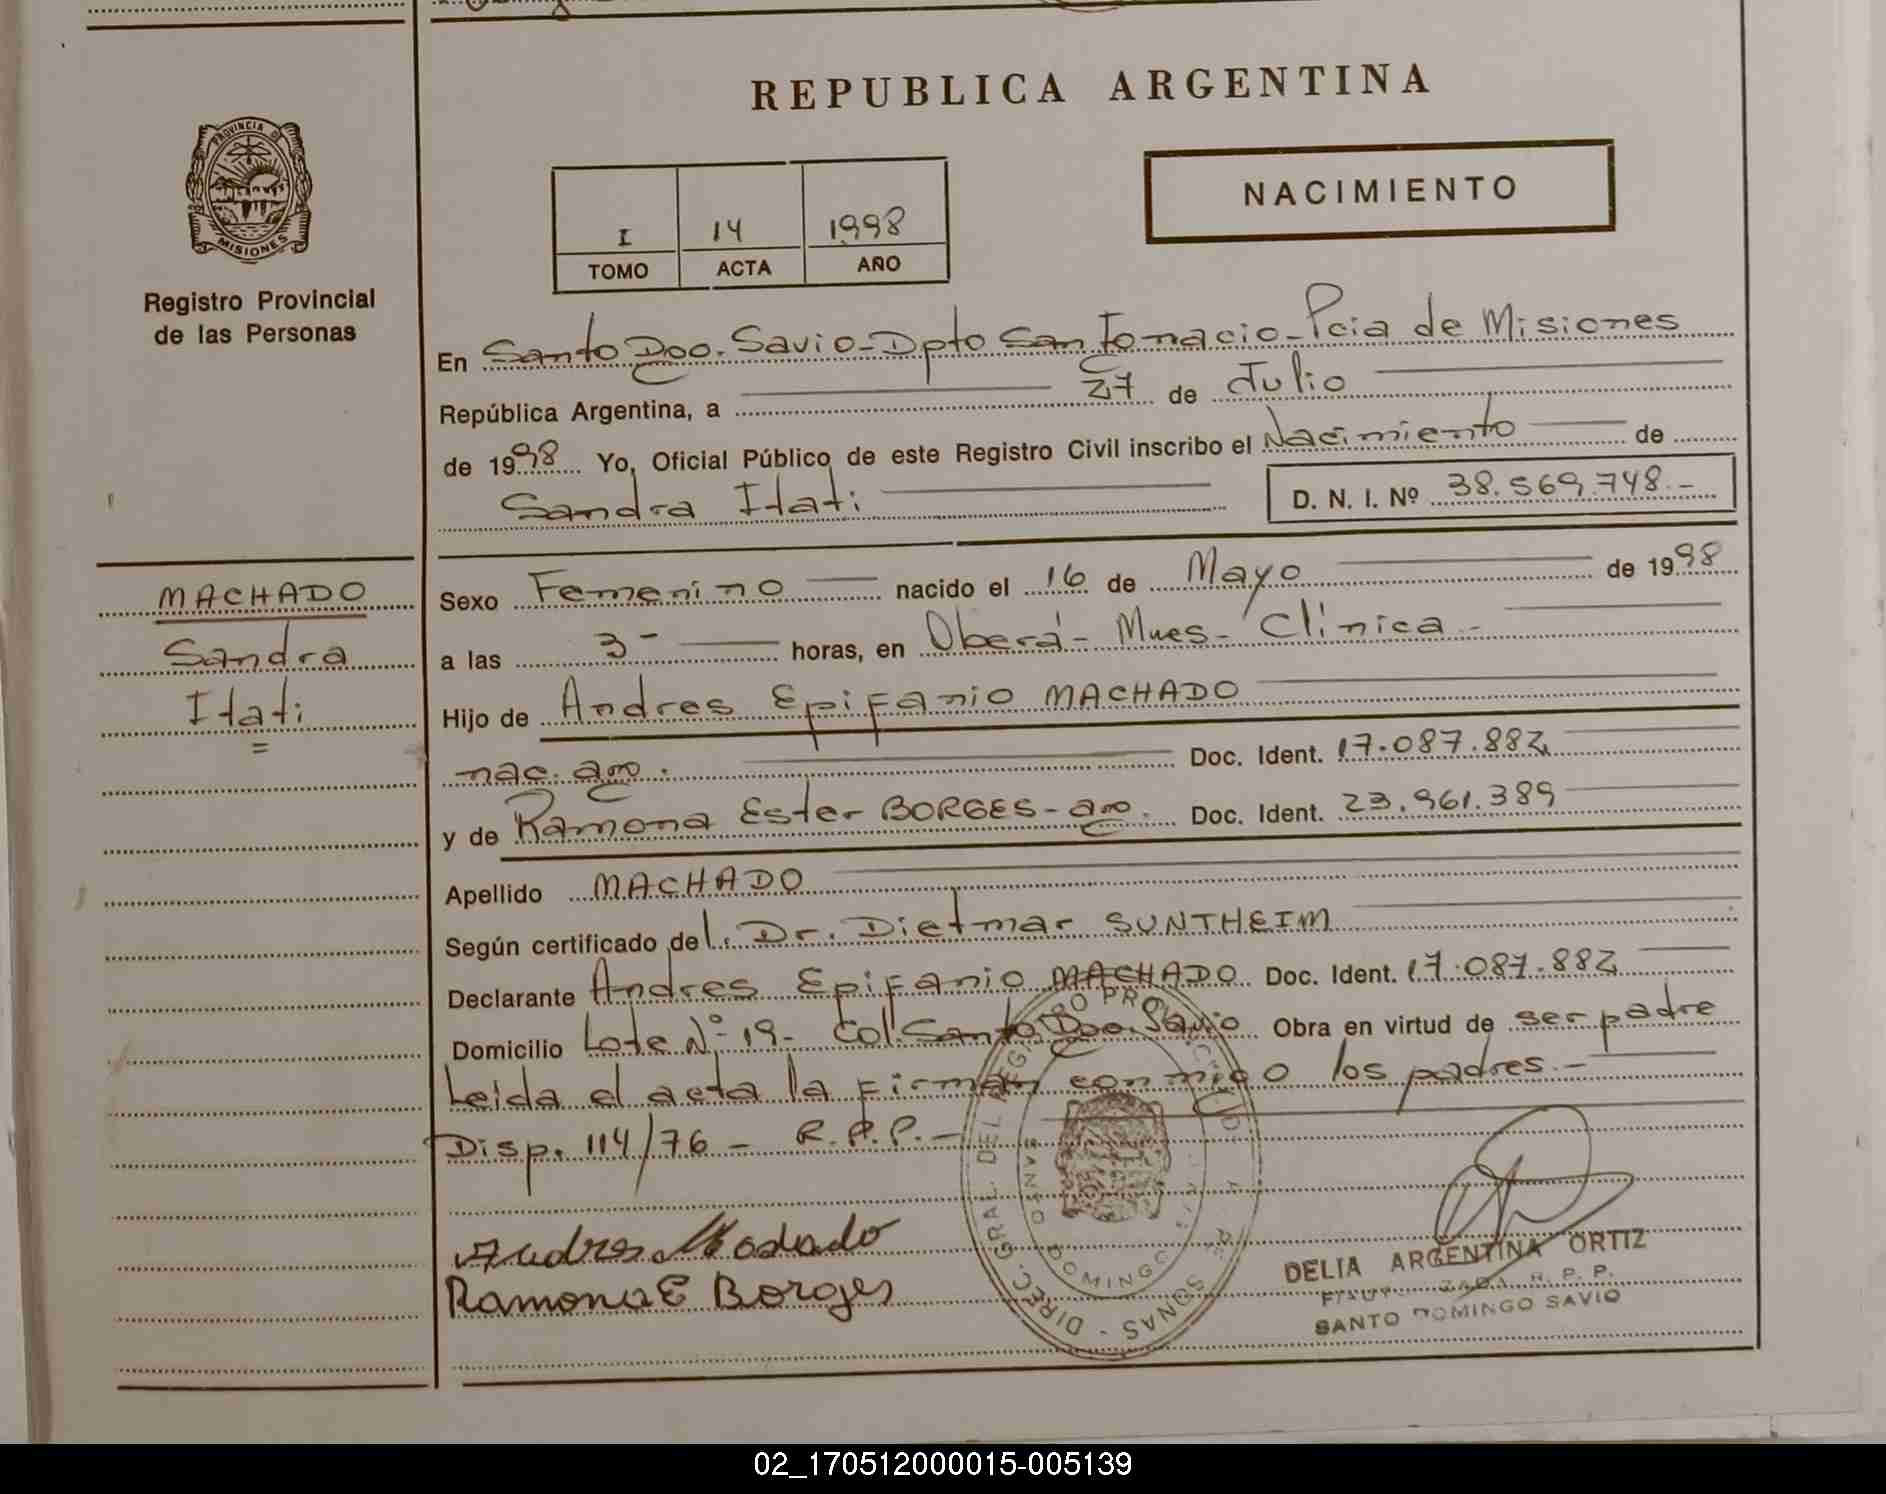 PROVINCIA D
MISIONES
Registro Provincial
de las Personas
REPUBLICA ARGENTINA
NACIMIENTO
I 14 1998
TOMO ACTA AÑO
En Santo Dgo. Savio - Dpto San Ignacio - Pcia de Misiones
República Argentina, a 27 de Julio
de 1998 Yo, Oficial Público de este Registro Civil inscribo el Nacimiento de
Sandra Itati D. N. I. Nº 38.569.748.-
MACHADO
Sandra
Itati
=
Sexo Femenino nacido el 16 de Mayo de 1998
a las 3 - horas, en Oberá - Mnes - Clínica -
Hijo de Andres Epifanio MACHADO
nac. arg. Doc. Ident. 17.087.882
y de Ramona Ester BORGES - arg. Doc. Ident. 23.961.389
Apellido MACHADO
Según certificado del. Dr. Dietmar SUNTHEIM
Declarante Andres Epifanio MACHADO Doc. Ident. 17.087.882
Domicilio Lote Nº 19 - Col. Santo Dgo. Savio Obra en virtud de ser padre
Leida el acta la firman conmigo los padres.-
Disp. 114/76 - R.P.P.-
Andres Machado
Ramona E Borges
DIREC. GRAL. DEL REGISTRO PROVINCIAL DE
SANTO DOMINGO
DELIA ARGENTINA ORTIZ
R. P. P.
SANTO DOMINGO SAVIO
02_170512000015-005139